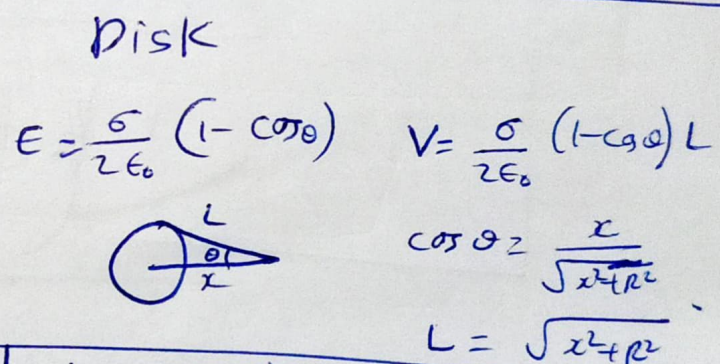 Disk
E = σ/2ε₀ (1 - cosθ)  V = σ/2ε₀ (1-cosθ) L
L
θ
x
cos θ = x/√(x²+R²)
L = √(x²+R²)